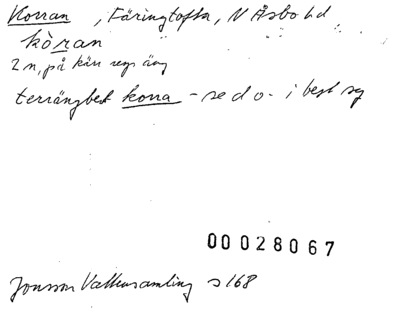 Korran, Färingtofta, N Åsbo hd
kòran
2 n, på kärr resp äng
terrängbet korra - se d o - i best sg
00028067
Jonsson Vattensamling s 168